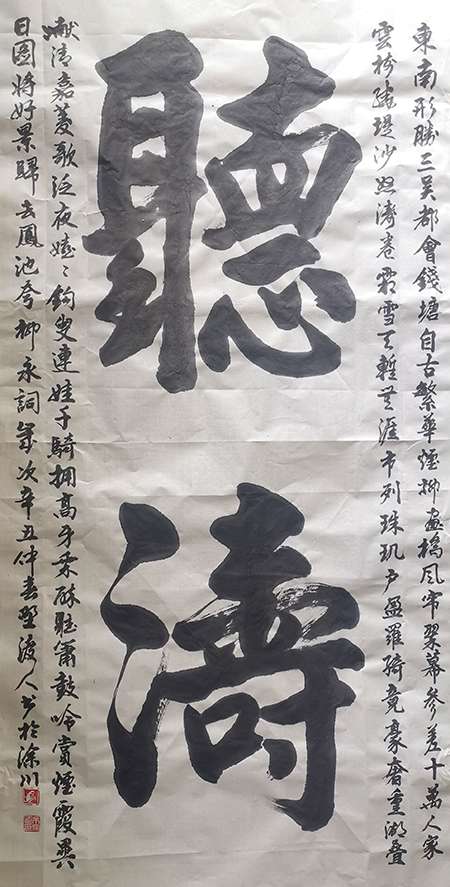 東南形勝三吴都會錢塘自古繁華煙柳畫橋風帘翠幕參差十萬人家
雲樹绕堤沙怒濤卷霜雪天塹無涯市列珠玑户盈羅绮竞豪奢重湖叠
聽濤
献清嘉菱歌泛夜嬉々釣叟連娃千騎拥高牙乘酔聽簫鼓吟賞煙霞異
日圖將好景歸去鳳池夸柳永詞歲次辛丑仲春渡人书於滁川